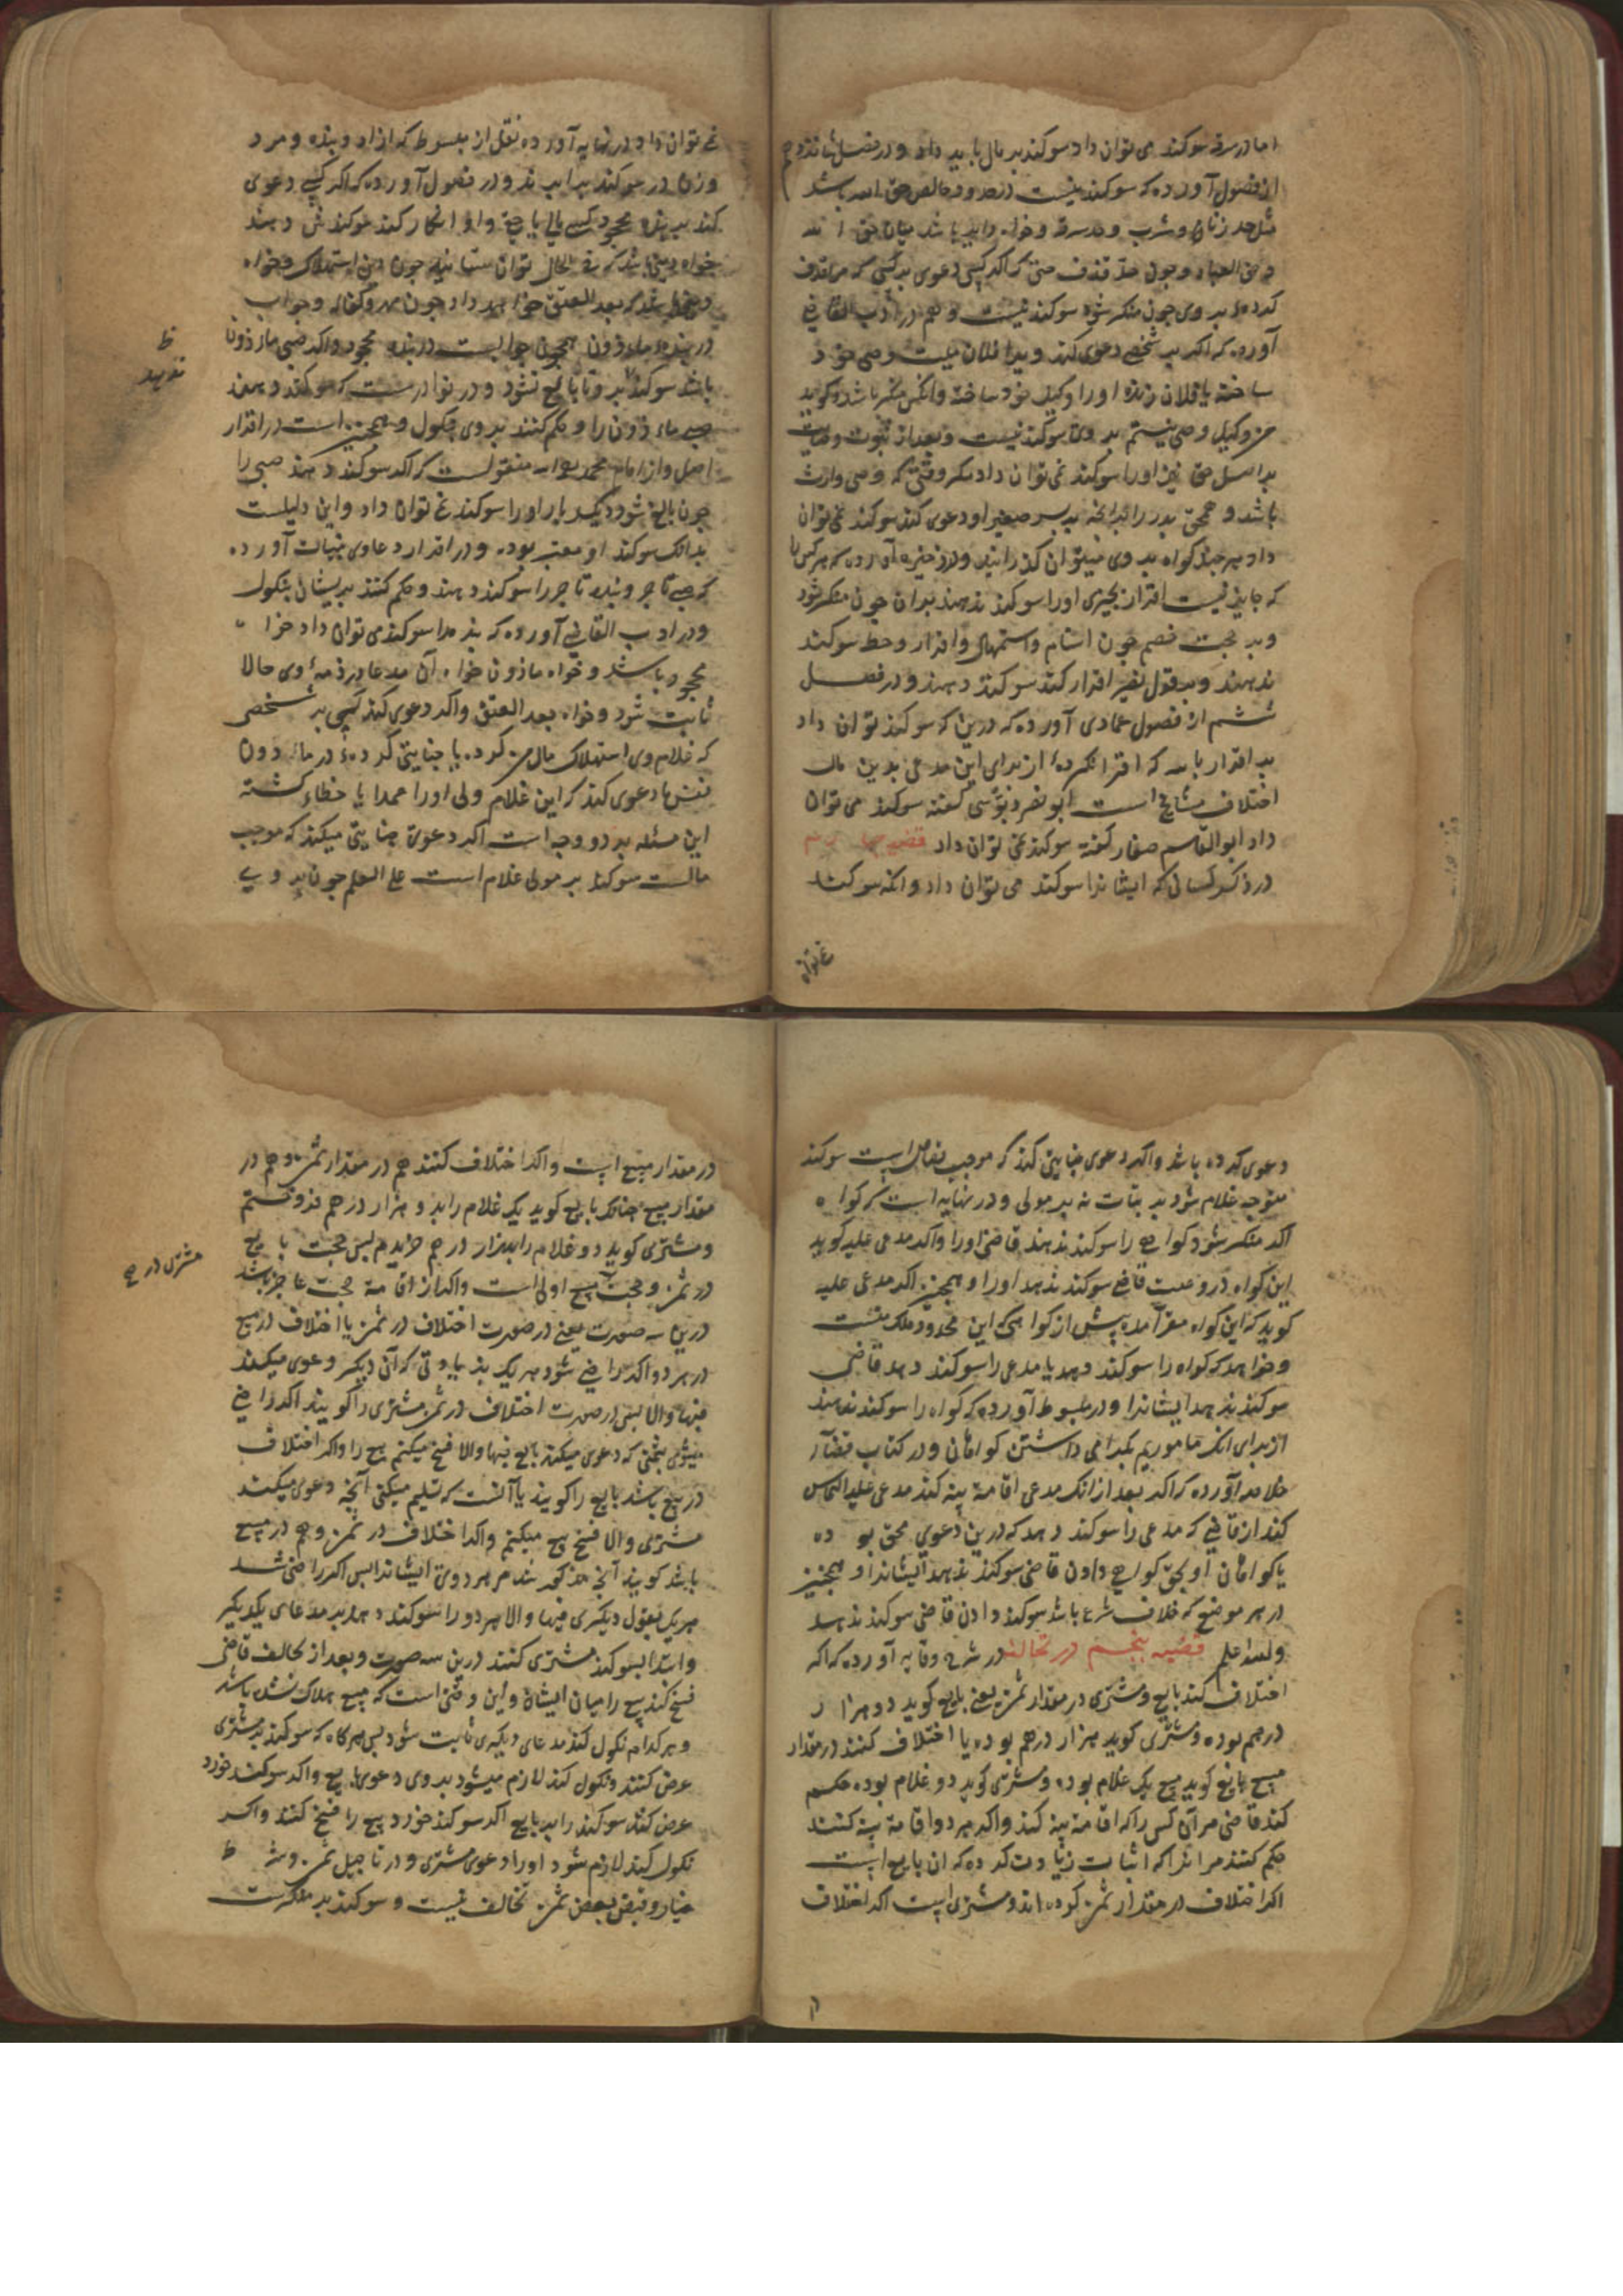 اما در سرقه سوکند می توان داد سوکند بر مال باید داد و در فصل شانزدهم
از فصول آورده که سوکند نیست در حدود خالص حق الله باشد
مثل حد زنا و شرب و حد سرقه و خواه دایر باشد میان حق الله
و حق العباد و چون حد قذف حتی که اکر کسی دعوی بر کسی که مرا قذف
کردهٔ بر وی چون منکر شود سوکند نیست و هم در ادب القاضی
آورده که اکر بر شخصی دعوی کند که ویرا فلان میت وصی خود
ساخته یا فلان زنده او را وکیل خود ساخته و آنکس منکر باشد و کوید
من وکیل و وصی نیستم بر وی سوکند نیست و بعد از ثبوت وصایت
بر اصل حق نیز او را سوکند نمی توان داد مکر وقتی که وصی وارث
باشد و همچنین پدر را برانچه بر پسر صغیر او دعوی کند سوکند نمی توان
داد هر چند کواه بر وی میتوان کذرانید و در ذخیره آورده که هر کس را
که جایز نیست اقرار بچیزی او را سوکند ندهند بران چون منکر شود
و بر حجت خصم چون استام و استمهال و اقرار و حط سوکند
ندهند و بقول نفیر اقرار کند سوکند دهند و در فصل
ششم از فصول عمادی آورده که درین که سوکند توان داد
بر اقرار بانه که اقرار نکردهٔ از برای این مدعی بدین مال
اختلاف مشایخ است ابو نصر دبوسی کفته سوکند می توان
داد ابو القاسم صفار کفته سوکند نمی توان داد قضیه چهارم
در ذکر کسانی که ایشانرا سوکند می توان داد و انکه سوکند
نمی توان
نمی توان داد در نهایه آورده نقل از مبسوط که ازاد و بنده و مرد
و زن در سوکند برابرند و در فصول آورده که اکر کسی دعوی
کند بر بنده محجور کسی مالی یا حقی و او انکار کند سوکندش دهند
خواه دینی باشد که فی الحال توان ستانید چون دین استهلاک و خواه
دینی باشد که بعد العتق خواهد داد چون مهر و کفاله و جواب
در بنده ماءذون همچون جوابست در بنده محجور و اکر صبی ماءذون
باشد سوکند بر وی تا بالغ نشود و در نوادرست که سوکند دهند
صبی ماءذون را و حکم کنند بر وی بنکول و همچنین است در اقرار
اصل و از امام محمد روایت منقولست که اکر سوکند دهند صبی را
چون بالغ شود دیکر بار او را سوکند نمی توان داد و این دلیلست
بدانک سوکند او معتبر بوده و در اقرار دعاوی بنیات آورده
که صبی تاجر و بنده تاجر را سوکند دهند و حکم کنند بریشان بنکول
و در ادب القاضی آورده که بنده را سوکند می توان داد خواه
محجور باشد و خواه ماذون خواه آن مدعا در ذمهٔ وی حالا
ثابت شود و خواه بعد العتق و اکر دعوی کند کسی بر شخصی
که غلام وی استهلاک مال من کرده یا جنایتی کرده در ماء دون
نفس یا دعوی کند که این غلام ولی او را عمدا یا خطاء کشته
این مسئله بر دو وجه است اکر دعوی جنایتی میکند که موجب
مالست سوکند بر مولی غلام است علی العلم چون بر وی
ظ
ندهند
دعوی کرده باشد و اکر دعوی جنایتی کند که موجب قصاص است سوکند
متوجه غلام شود بر بتات نه بر مولی و در نهایه است که کواه
اکر منکر شود کواهی را سوکند ندهند قاضی او را و اکر مدعی علیه کوید
این کواه دروغست قاضی سوکند ندهد او را و همچنین اکر مدعی علیه
کوید که این کواه مقر آمده پیش از کواهی که این محدود ملک منست
و خواهد که کواه را سوکند دهد یا مدعی را سوکند دهد قاضی
سوکند ندهد ایشانرا و در مبسوط آورده که کواه را سوکند ندهند
از برای انک ماموریم بکرامی داشتن کواهان و در کتاب قضاء
خلاصه آورده که اکر بعد از انک مدعی اقامة بینه کند مدعی علیه التماس
کند از قاضی که مدعی را سوکند دهد که درین دعوی محق بوده
یا کواهان او بحق کواهی دادن قاضی سوکند ندهد ایشانرا و همچنین
در هر موضع که خلاف شرع باشد سوکند دادن قاضی سوکند ندهد
والله اعلم قضیه پنجم در تحالف در شرح وقایه آورده که اکر
اختلاف کند بایع و مشتری در مقدار ثمن یعنی بایع کوید دو هزار
درهم بوده و مشتری کوید هزار درهم بوده یا اختلاف کنند در مقدار
مبیع بایع کوید مبیع یک غلام بوده و مشتری کوید دو غلام بوده حکم
کند قاضی مر آن کس را که اقامة بینه کند و اکر هر دو اقامة بینه کنند
حکم کنند مر انرا که اثبات زیادت کرده که ان بایع است
اکر اختلاف در مقدار ثمن کرده اند و مشتری است اکر اختلاف
در مقدار مبیع است و اکر اختلاف کنند هم در مقدار ثمن و هم در
مقدار مبیع چنانک بایع کوید یک غلام را بدو هزار درهم فروختم
و مشتری کوید دو غلام را بهزار درهم خریدم پس حجت بایع
در ثمن و حجت مشتری در مبیع اولی است و اکر از اقامة حجت عاجز باشند
درین سه صورت یعنی در صورت اختلاف در ثمن یا اختلاف در مبیع
در هر دو اکر راضی شود هر یک بزیادتی که آن دیکر دعوی میکند
فبها والا پس در صورت اختلاف در ثمن مشتری را کویند اکر راضی
میشوی بثمنی که دعوی میکند بایع فبها والا فسخ میکنیم بیع را و اکر اختلاف
در مبیع باشد بایع را کویند یا آنست که تسلیم میکنی آنچه دعوی میکند
مشتری والا فسخ بیع میکنیم و اکر اختلاف در ثمن و هم در مبیع
باشد کویند آنچه مذکور شد مر هر دوی ایشانرا پس اکر راضی شد
هر یک بقول دیکری فبها والا هر دو را سوکند دهد بر مدعای یکدیکر
و ابتدا بسوکند مشتری کنند درین سه صورت و بعد از تحالف قاضی
فسخ کند بیع را میان ایشان و این وقتی است که مبیع هلاک نشده باشد
و هر کدام نکول کند مدعای دیکری ثابت شود پس هر کاه که سوکند بر مشتری
عرض کنند و نکول کند لازم میشود بر وی دعوی بایع و اکر سوکند خورد
عرض کنند سوکند را بر بایع اکر سوکند خورد بیع را فسخ کنند و اکر
نکول کند لازم شود او را دعوی مشتری و در تاجیل ثمن و شرط
خیار و قبض بعض ثمن تخالف نیست و سوکند بر منکرست
مشتری در